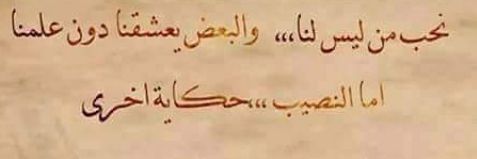 نحب من ليس لنا،،، والبعض يعشقنا دون علمنا
اما النصيب ،،،حكاية اخرى